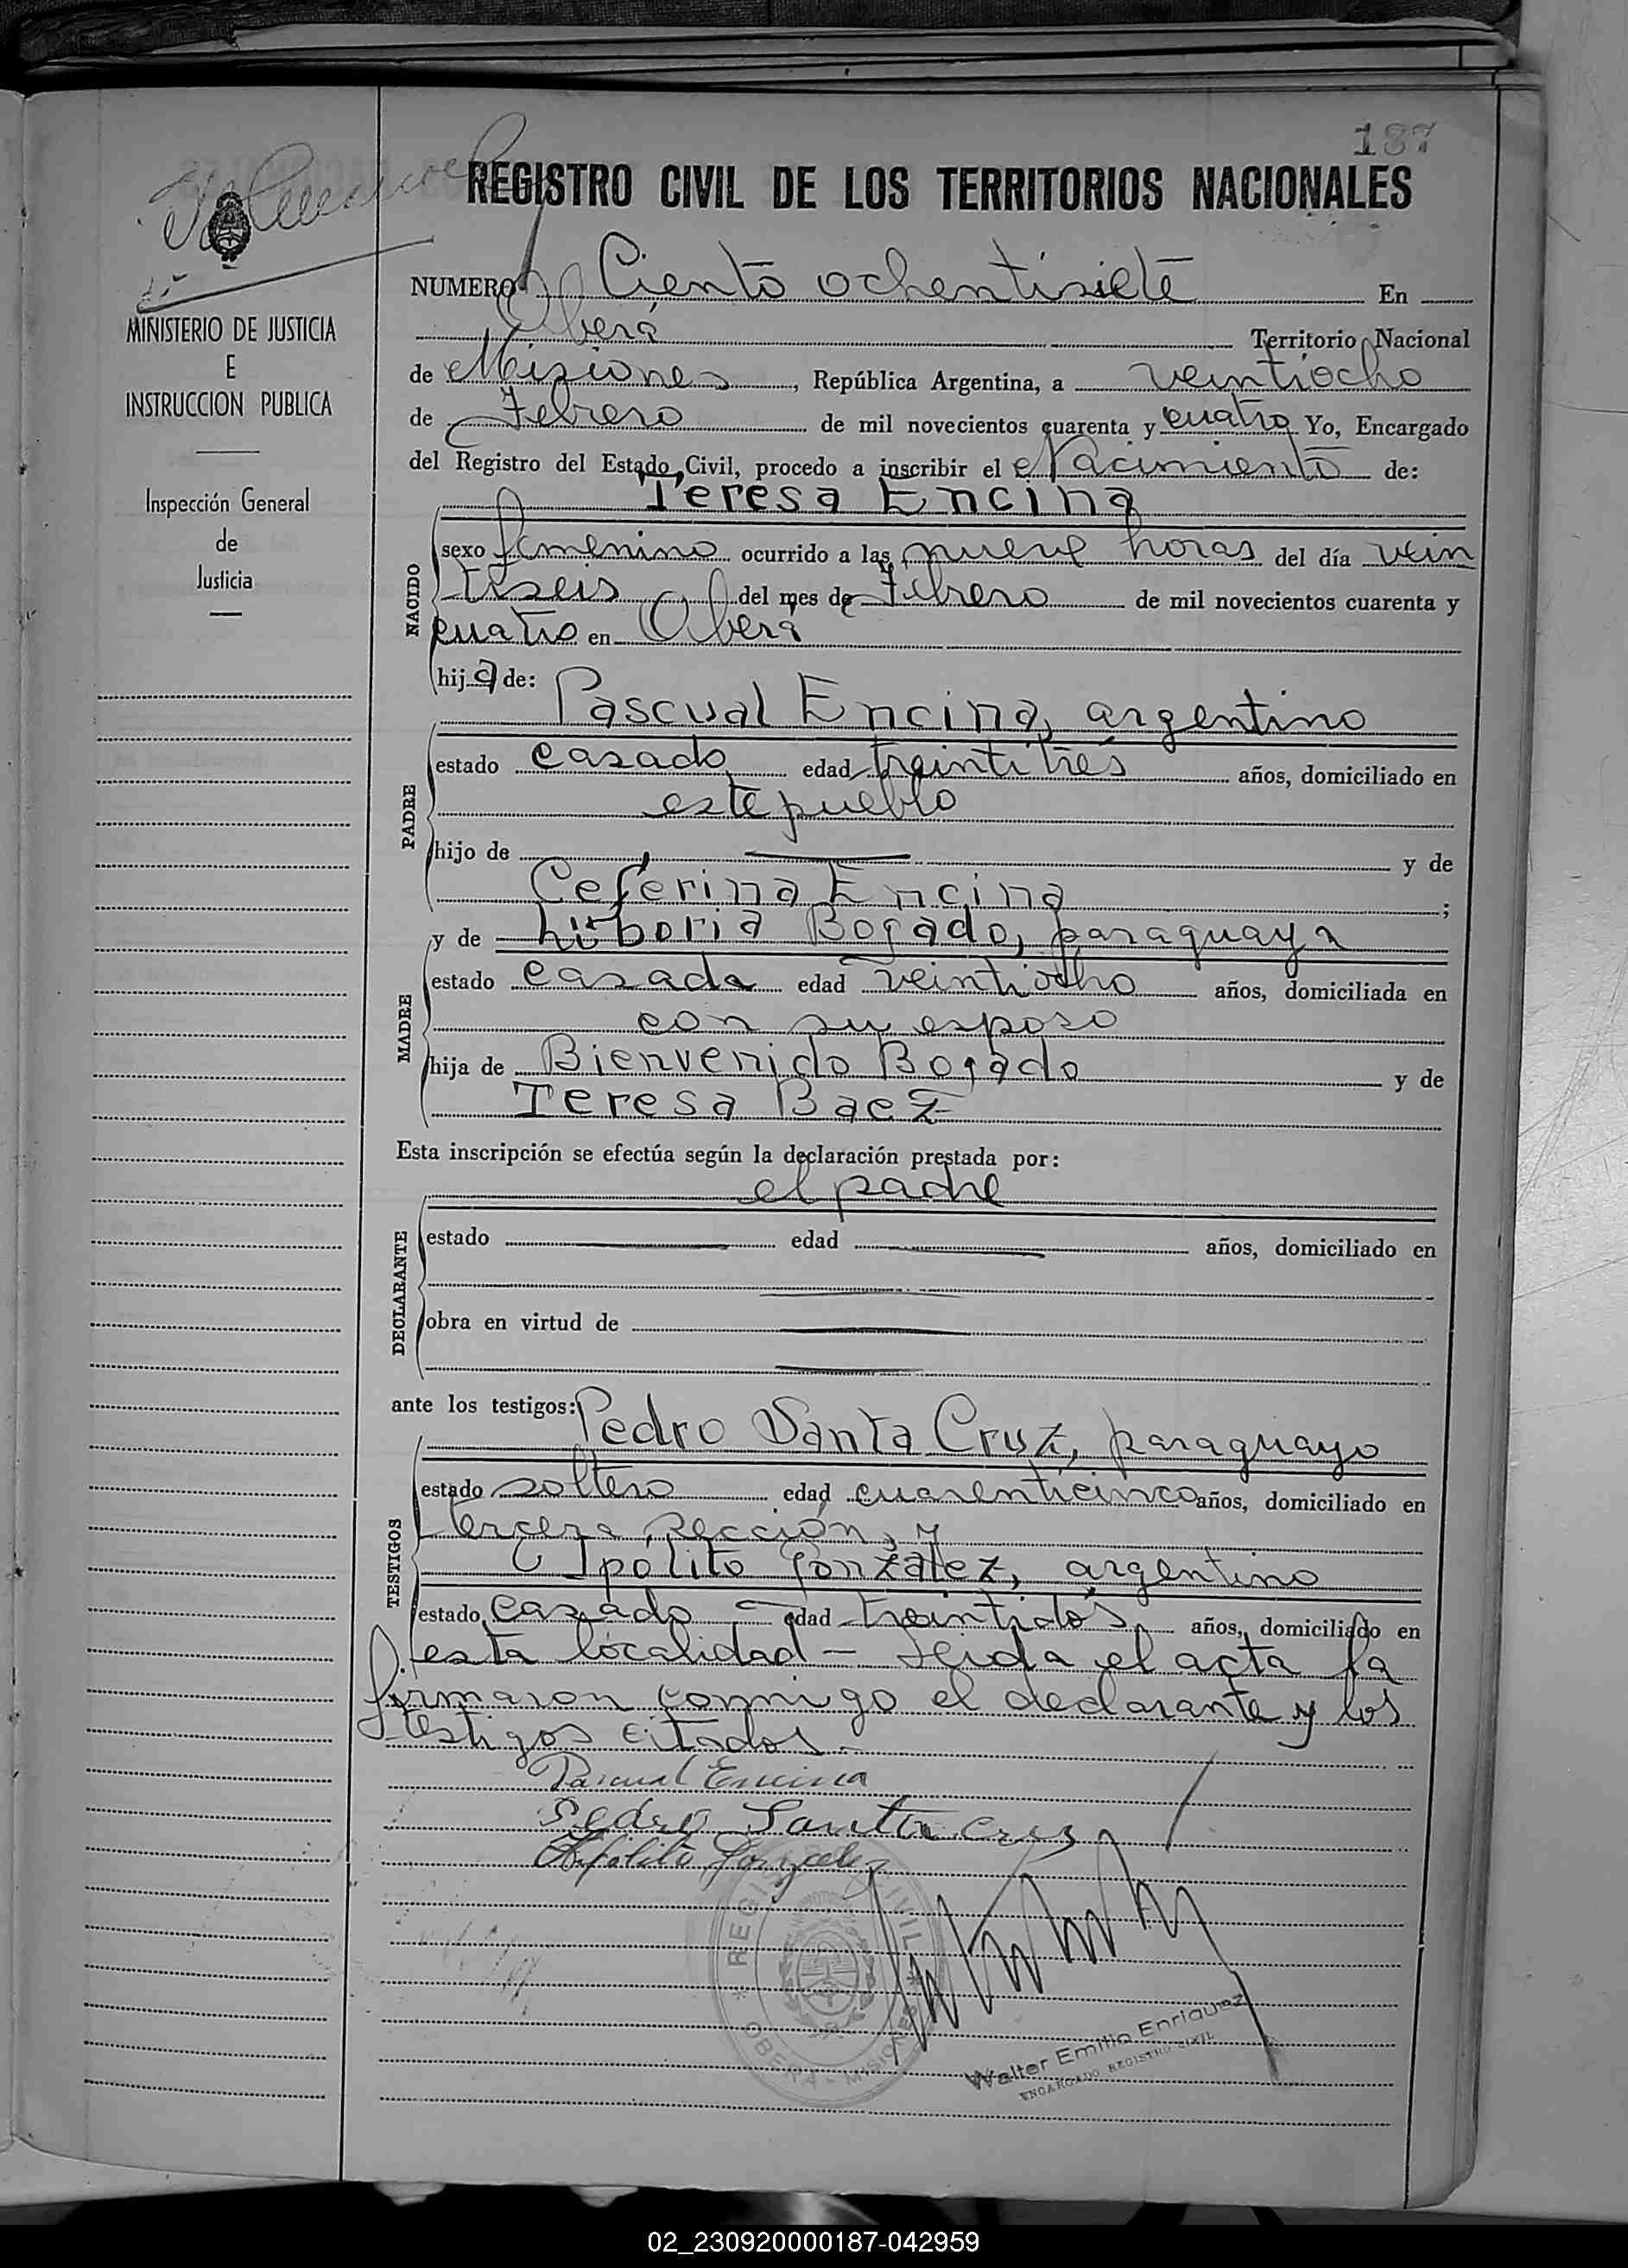 187
REGISTRO CIVIL DE LOS TERRITORIOS NACIONALES
MINISTERIO DE JUSTICIA
E
INSTRUCCION PUBLICA
Inspección General
de
Justicia
NUMERO Ciento ochentisiete En
Oberá Territorio Nacional
de Misiones, República Argentina, a veintiocho
de Febrero de mil novecientos cuarenta y cuatro Yo, Encargado
del Registro del Estado Civil, procedo a inscribir el Nacimiento de:
Teresa Encina
NACIDO
sexo femenino ocurrido a las nueve horas del día vein
tiseis del mes de Febrero de mil novecientos cuarenta y
cuatro en Oberá
hija de:
Pascual Encina, argentino
PADRE
estado casado edad treintitrés años, domiciliado en
este pueblo
hijo de y de
Ceferina Encina ;
y de Liboria Bogado, paraguaya
MADRE
estado casada edad veintiocho años, domiciliada en
con su esposo
hija de Bienvenido Bogado y de
Teresa Baez
Esta inscripción se efectúa según la declaración prestada por:
el padre
DECLARANTE
estado edad años, domiciliado en
obra en virtud de
ante los testigos: Pedro Santa Cruz, paraguayo
TESTIGOS
estado soltero edad cuarenticinco años, domiciliado en
tercera sección, y
Ipólito González, argentino
estado casado - edad treintidós años, domiciliado en
esta localidad - Leida el acta la
firmaron conmigo el declarante y los
testigos citados.-
Pascual Encina
Pedro Santa Cruz
Hipólito Gonzalez
REGISTRO CIVIL
OBERA - MISIONES
Walter Emilio Enriquez
ENCARGADO REGISTRO CIVIL
02_230920000187-042959